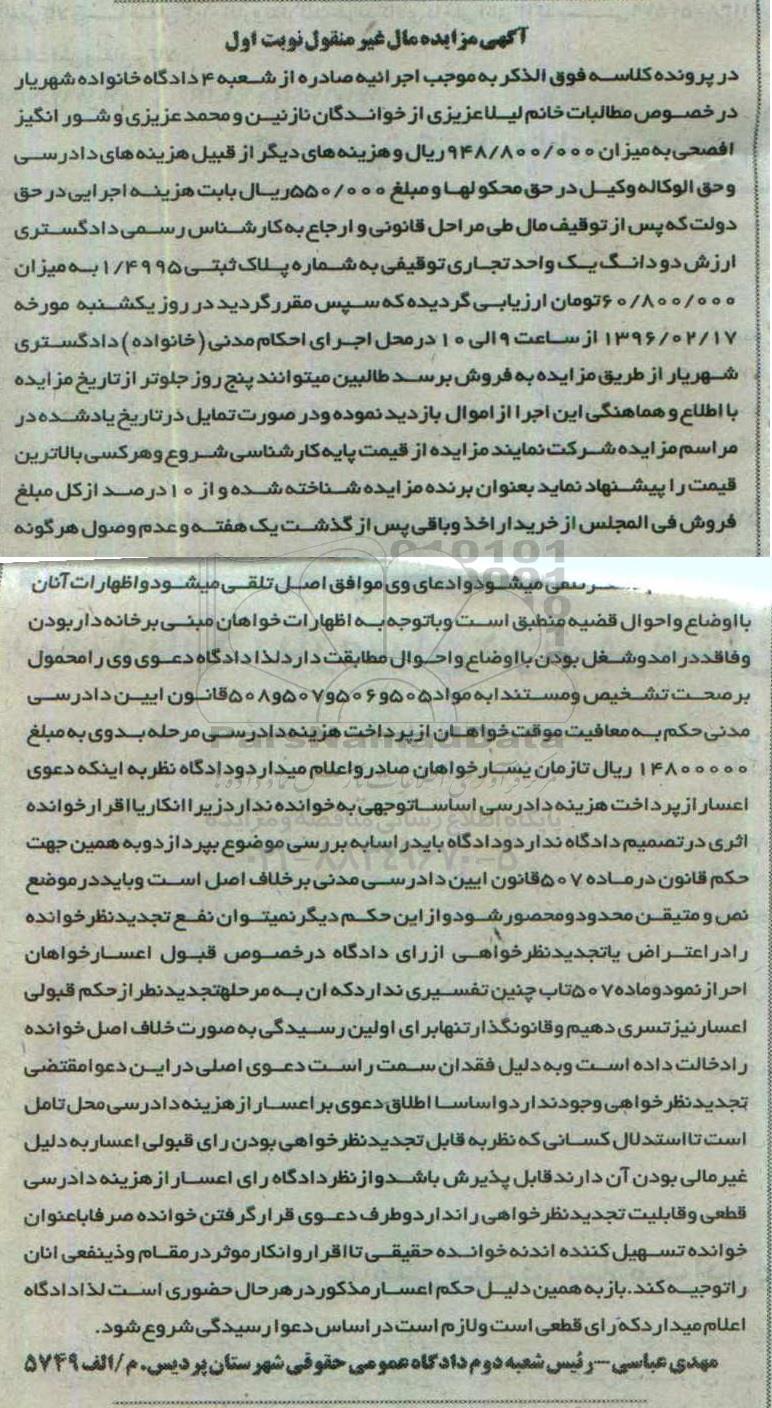 آگهی مزایده مال غیر منقول نوبت اول
در پرونده کلاسه فوق الذکر به موجب اجرائیه صادره از شعبه ۴ دادگاه خانواده شهریار
در خصوص مطالبات خانم لیلا عزیزی از خواندگان نازنین و محمد عزیزی و شور انگیز
افصحی به میزان ۹۴۸/۸۰۰/۰۰۰ ریال و هزینه های دیگر از قبیل هزینه های دادرسی
وحق الوکاله وکیل در حق محکو لها و مبلغ ۵۵۰/۰۰۰ریال بابت هزینه اجرایی در حق
دولت که پس از توقیف مال طی مراحل قانونی و ارجاع به کارشناس رسمی دادگستری
ارزش دو دانگ یک واحد تجاری توقیفی به شماره پلاک ثبتی ۱/۴۹۹۵ به میزان
۶۰/۸۰۰/۰۰۰تومان ارزیابی گردیده که سپس مقرر گردید در روز یکشنبه مورخه
۱۳۹۶/۰۲/۱۷ از ساعت ۹ الی ۱۰ درمحل اجرای احکام مدنی (خانواده) دادگستری
شهریار از طریق مزایده به فروش برسد طالبین میتوانند پنج روز جلوتر از تاریخ مزایده
با اطلاع و هماهنگی این اجرا از اموال بازدید نموده ودر صورت تمایل در تاریخ یادشده در
مراسم مزایده شرکت نمایند مزایده از قیمت پایه کارشناسی شروع وهرکسی بالاترین
قیمت را پیشنهاد نماید بعنوان برنده مزایده شناخته شده و از ۱۰ درصد ازکل مبلغ
فروش فی المجلس از خریدار اخذ وباقی پس از گذشت یک هفته و عدم وصول هرگونه
میشودوادعای وی موافق اصل تلقی میشودواظهارات آنان
بااوضاع واحوال قضیه منطبق است وباتوجه به اظهارات خواهان مبنی برخانه داربودن
وفاقددرامدوشغل بودن بااوضاع واحوال مطابقت داردلذا دادگاه دعوی وی رامحمول
برصحت تشخیص ومستندابه مواد۵۰۵و۵۰۶و۵۰۷و۵۰۸قانون ایین دادرسی
مدنی حکم به معافیت موقت خواهان ازپرداخت هزینه دادرسی مرحله بدوی به مبلغ
۱۴۸۰۰۰۰۰ ریال تازمان یسارخواهان صادرواعلام میداردودادگاه نظربه اینکه دعوی
اعسارازپرداخت هزینه دادرسی اساساتوجهی به خوانده نداردزیراانکاریااقرارخوانده
اثری درتصمیم دادگاه نداردودادگاه بایدراسابه بررسی موضوع بپردازدوبه همین جهت
حکم قانون درماده ۵۰۷قانون ایین دادرسی مدنی برخلاف اصل است وبایددرموضع
نص و متیقن محدودومحصورشودوازاین حکم دیگرنمیتوان نفع تجدیدنظرخوانده
رادراعتراض یاتجدیدنظرخواهی ازرای دادگاه درخصوص قبول اعسارخواهان
احرازنمودوماده۵۰۷تاب چنین تفسیری نداردکه ان به مرحلهتجدیدنطرازحکم قبولی
اعسارنیزتسری دهیم وقانونگذارتنهابرای اولین رسیدگی به صورت خلاف اصل خوانده
رادخالت داده است وبه دلیل فقدان سمت راست دعوی اصلی دراین دعوامقتضی
تجدیدنظرخواهی وجودنداردواساسا اطلاق دعوی براعسارازهزینه دادرسی محل تامل
است تااستدلال کسانی که نظربه قابل تجدیدنظرخواهی بودن رای قبولی اعساربه دلیل
غیرمالی بودن آن دارندقابل پذیرش باشدوازنظردادگاه رای اعسارازهزینه دادرسی
قطعی وقابلیت تجدیدنظرخواهی رانداردوطرف دعوی قرارگرفتن خوانده صرفاباعنوان
خوانده تسهیل کننده اندنه خوانده حقیقی تااقراروانکارموثردرمقام وذینفعی انان
راتوجیه کند.بازبه همین دلیل حکم اعسارمذکوردرهرحال حضوری است لذادادگاه
اعلام میداردکه رای قطعی است ولازم است دراساس دعوا رسیدگی شروع شود.
مهدی عباسی –رئیس شعبه دوم دادگاه عمومی حقوقی شهرستان پردیس. م/الف ۵۷۴۹